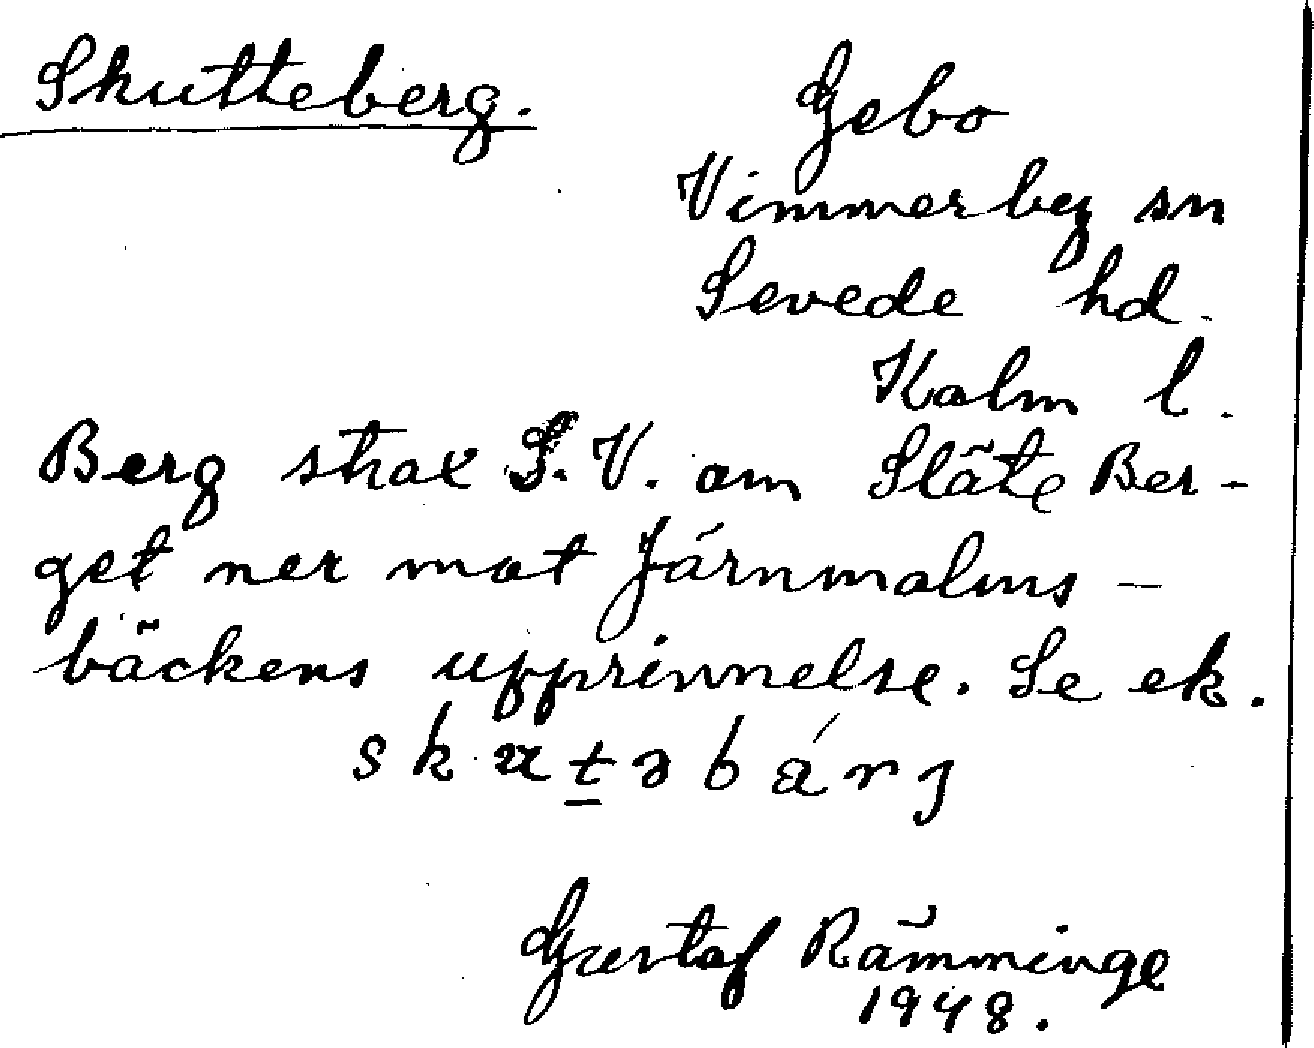 Skutteberg.
Gebo
Vimmerby sn
Sevede hd.
Kalm l.
Berg strax S.V. om Släte Ber-
get ner mot Järnmalms-
bäckens upprinnelse. Se ek.
skutəbárj
Gustaf Rämminge
1948.